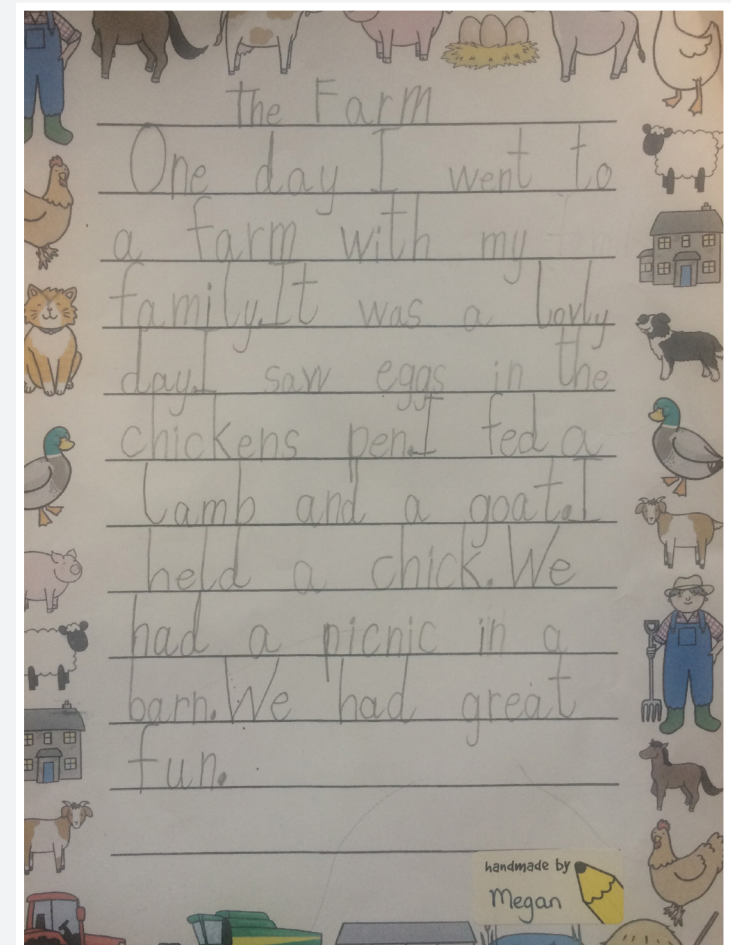 the Farm
One day I went to
a farm with my
family.It was a lovly
day.I saw eggs in the
chickens pen.I fed a
lamb and a goat.I
held a chick.We
had a picnic in a
barn.We had great
fun.
handmade by
Megan